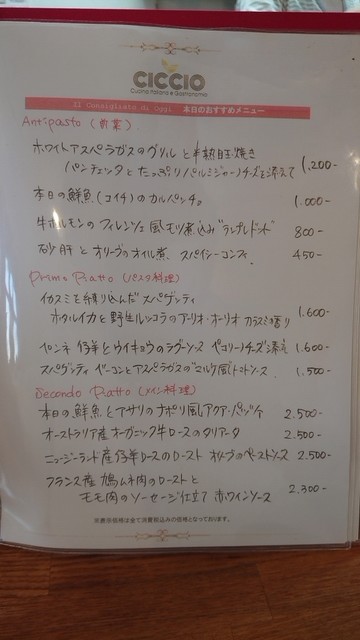 CICCIO
Cucina Italiana e Gastronomia
Il Consigliato di Oggi 本日のおすすめメニュー
Antipasto (前菜)
ホワイトアスパラガスのグリルと半熟目玉焼き
パンチェッタとたっぷりパルミジャーノチーズを添えて 1,200-
本日の鮮魚(コイチ)のカルパッチョ 1.000-
牛ホルモンのフィレンツェ風モツ煮込み"ランプレドット" 800-
砂肝とオリーヴのオイル煮、スパイシーコンフィ 450-
Primo Piatto (パスタ料理)
イカスミを練り込んだスパゲッティ
ホタルイカと野生ルッコラのアーリオ・オーリオ カラスミ添え 1.600-
ペンネ 仔羊とウイキョウのラグーソース ペコリーノチーズ添え 1.600-
スパゲッティ ベーコンとアスパラガスのビスマルク風トマトソース 1,500-
Secondo Piatto (メイン料理)
本日の鮮魚とアサリのナポリ風アクア・パッツァ 2.500-
オーストラリア産オーガニック牛ロースのタリアータ 2.500-
ニュージーランド産仔羊ロースのロースト オリーヴのペーストソース 2.500-
フランス産鳩ムネ肉のローストと
モモ肉のソーセージ仕立て 赤ワインソース 2.300-
※表示価格は全て消費税込みの価格となっております。